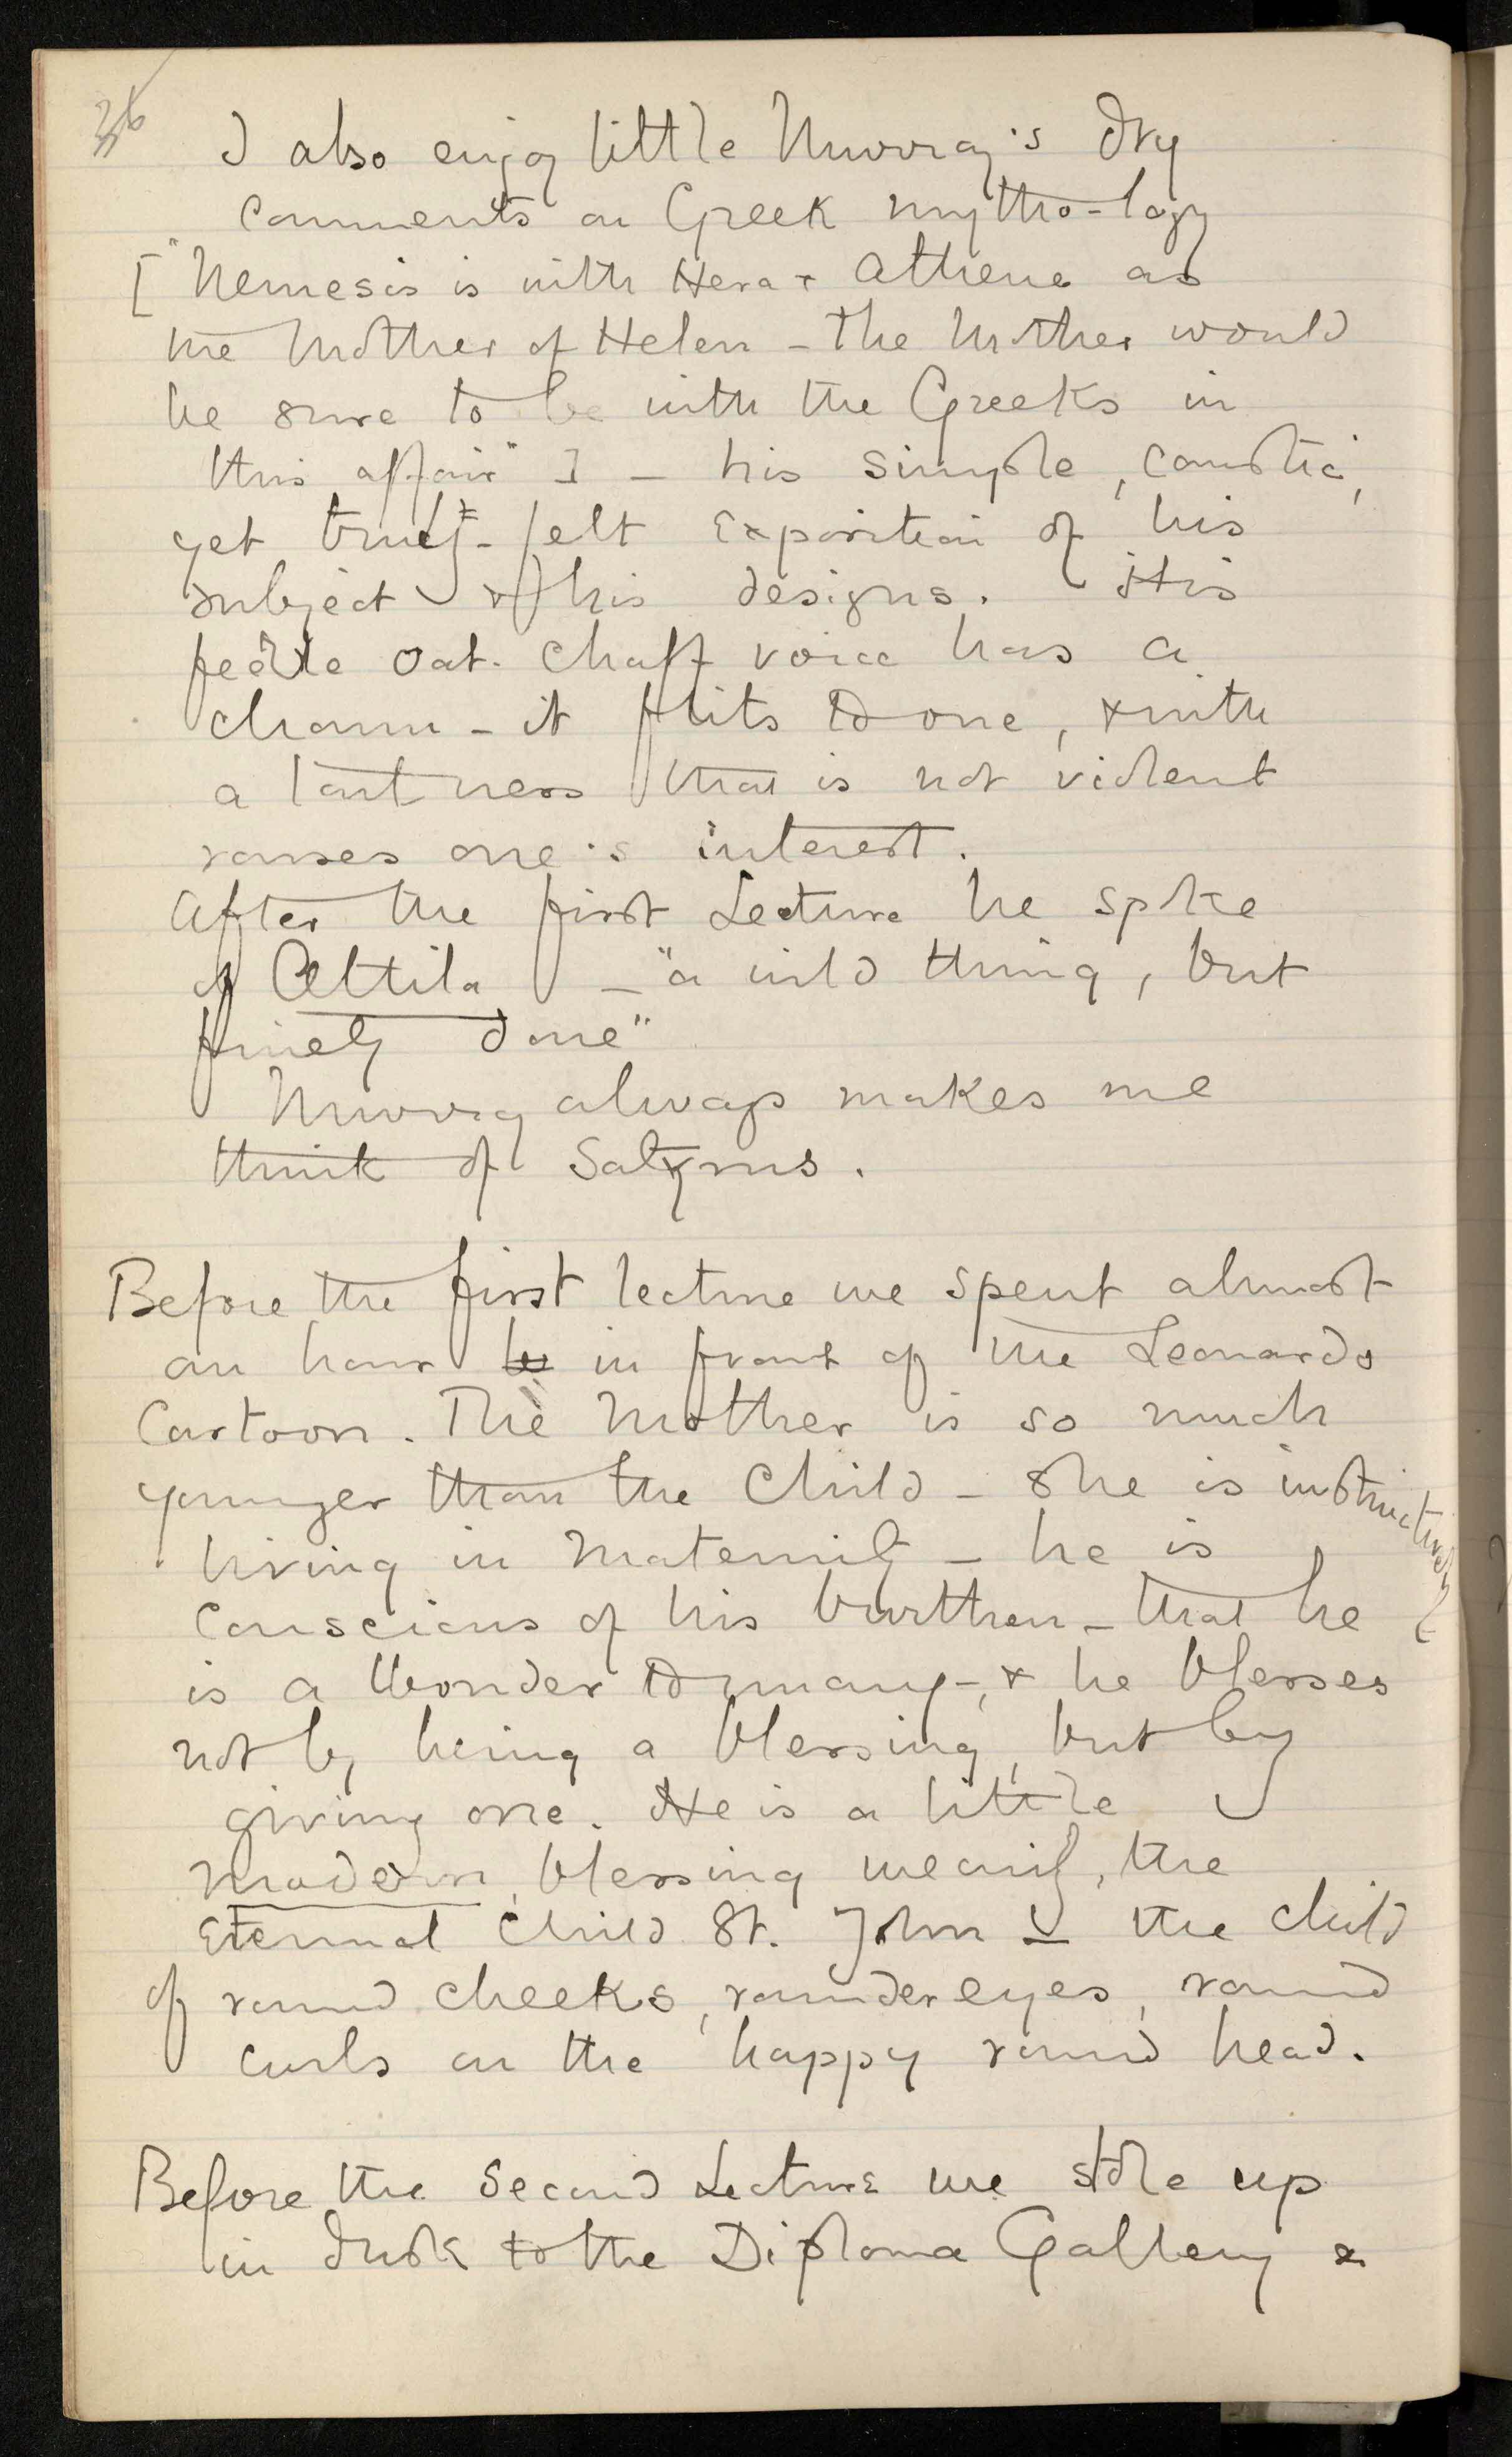 36
I also enjoy little Murray's dry
comments on Greek mytho-logy
["Nemesis is with Hera & Athene as
the Mother of Helen – the Mother would
be sure to be with the Greeks in
this affair"] – his simple, caustic,
yet truly-felt exposition of his
subject & of his designs. His
feeble oat-chaff voice has a
charm – it flits to one, & with
a tartness that is not violent
rouses one's interest.
After the first Lecture he spoke
of Attila – "a wild thing, but
finely done"
Murray always makes me
think of Satyrus.
Before the first lecture we spent almost
an hour in front of the Leonardo
Cartoon. The Mother is so much
younger than the Child – she is instinctively
living in Maternity – he is
conscious of his burthen – that he
is a Wonder to many –, & he blesses
not by being a blessing, but by
giving one. He is a little
modern, blessing wearily, the
Eternal Child St. John – the child
of round cheeks, rounder eyes, round
curls on the happy round head.
Before the Second Lecture we stole up
in dusk to the Diploma Gallery &